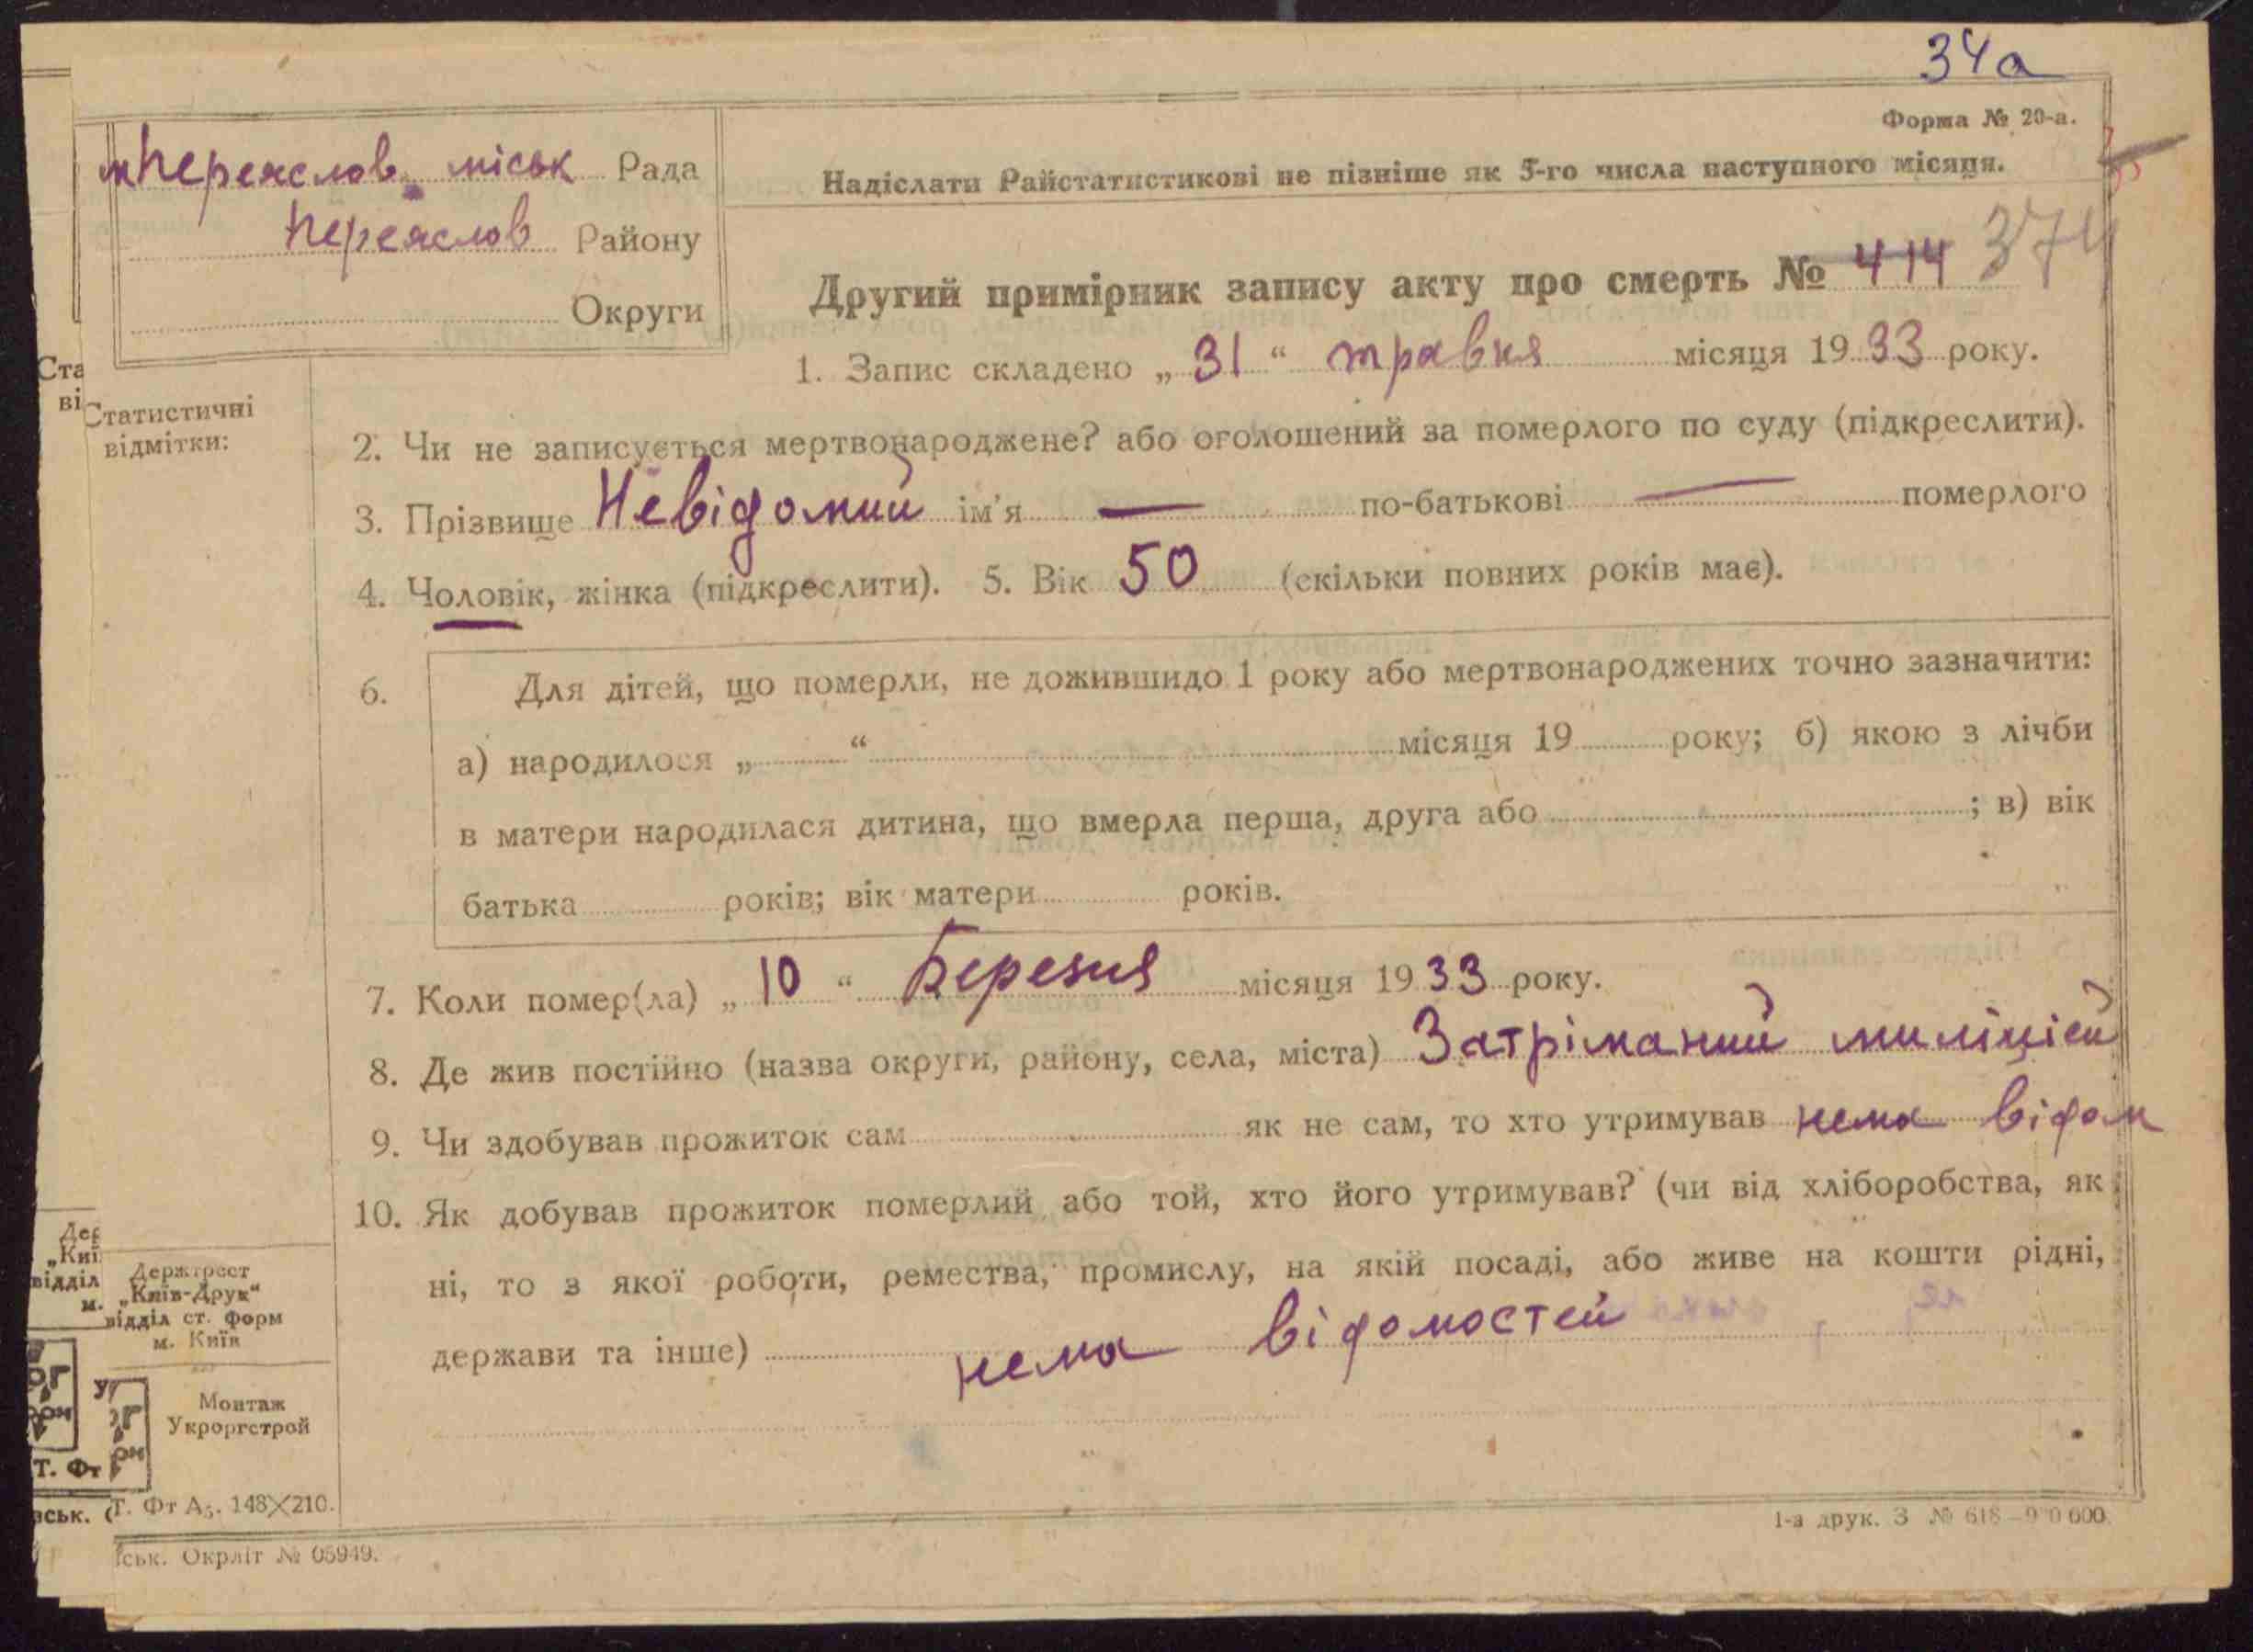 34а
Форма № 20-а.
м Переяслов. міськ Рада
Надіслати Райстатистикові не пізніше як 5-го числа наступного місяця.
Переяслов Району
Округи
Другий примірник запису акту про смерть № 414 374
1. Запис складено „ 31 “ травня місяця 1933 року.
Ста
ві
Статистичні
відмітки:
2. Чи не записується мертвонароджене? або оголошений за померлого по суду (підкреслити).
3. Прізвище Невідомий ім'я — по-батькові — померлого
4. Чоловік, жінка (підкреслити). 5. Вік 50 (скільки повних років має).
6. Для дітей, що померли, не дожившидо 1 року або мертвонароджених точно зазначити:
а) народилося „ “ місяця 19 року; б) якою з лічби
в матери народилася дитина, що вмерла перша, друга або ; в) вік
батька років; вік матери років.
7. Коли помер(ла) „ 10 “ Березня місяця 1933 року.
8. Де жив постійно (назва округи, району, села, міста) Затріманий миліцієй
9. Чи здобував прожиток сам як не сам, то хто утримував нема відом
10. Як добував прожиток померлий або той, хто його утримував? (чи від хліборобства, як
ні, то з якої роботи, ремества, промислу, на якій посаді, або живе на кошти рідні,
держави та інше) нема відомостей
Дер
„Киї
відділ
м.
Держтрест
„Київ-Друк“
відділ ст. форм
м. Київ
Монтаж
Укроргстрой
Т. Фт
Т. Фт А5. 148×210.
вськ. (
ськ. Окрліт № 05949.
1-а друк. З № 618